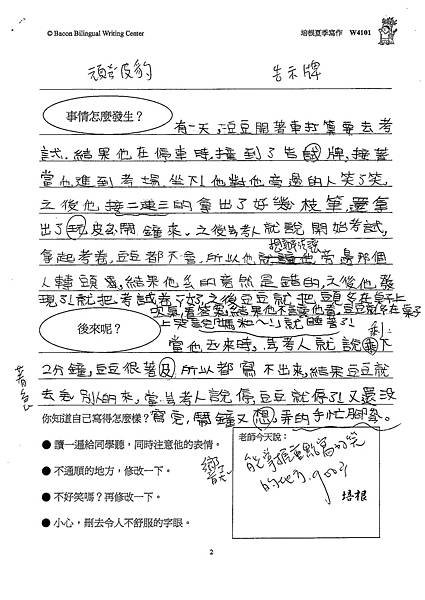 © Bacon Bilingual Writing Center
培根夏季寫作 W4101
頑皮豹
告示牌
事情怎麼發生？
有一天,豆豆開著車打算要去考
試.結果他在停車時,撞到了告試牌,接著
當他進到考場.坐下!他對他旁邊的人笑了笑,
之後他接二連三的拿出了好幾枝筆,還拿
出了玩皮豹鬧鐘來。之後考人就說開始考試,
拿起考卷,豆豆都不會,所以他就他旁邊那個
人轉頭看,結果他的竟然是錯的,之後他發
現了!就把考試卷,之後豆豆就把頭在桌子上
就睡著了!
後來呢？
當他來時,考人就說剩下
2分鐘,豆豆很著及所以都寫不出來,結果豆豆就
去看別人的來,當考人說停,豆豆就停了!又還沒
寫完,鬧鐘又想,弄的手忙腳亂。
著急
剩:
響
你知道自己寫得怎麼樣？
● 讀一遍給同學聽，同時注意他的表情。
● 不通順的地方，修改一下。
● 不好笑嗎？再修改一下。
● 小心，刪去令人不舒服的字眼。
老師今天說：
能掌握重點寫好笑
的地方, good!
培根
2